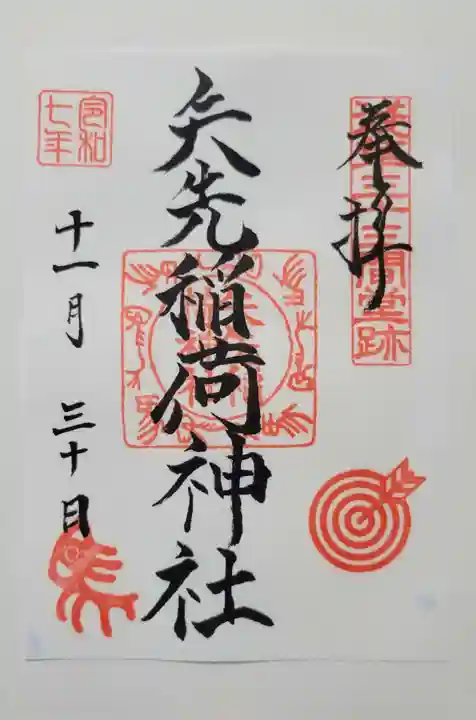 奉拝
三十三間堂跡
矢先稲荷神社
令和
七年
十一月 三十日